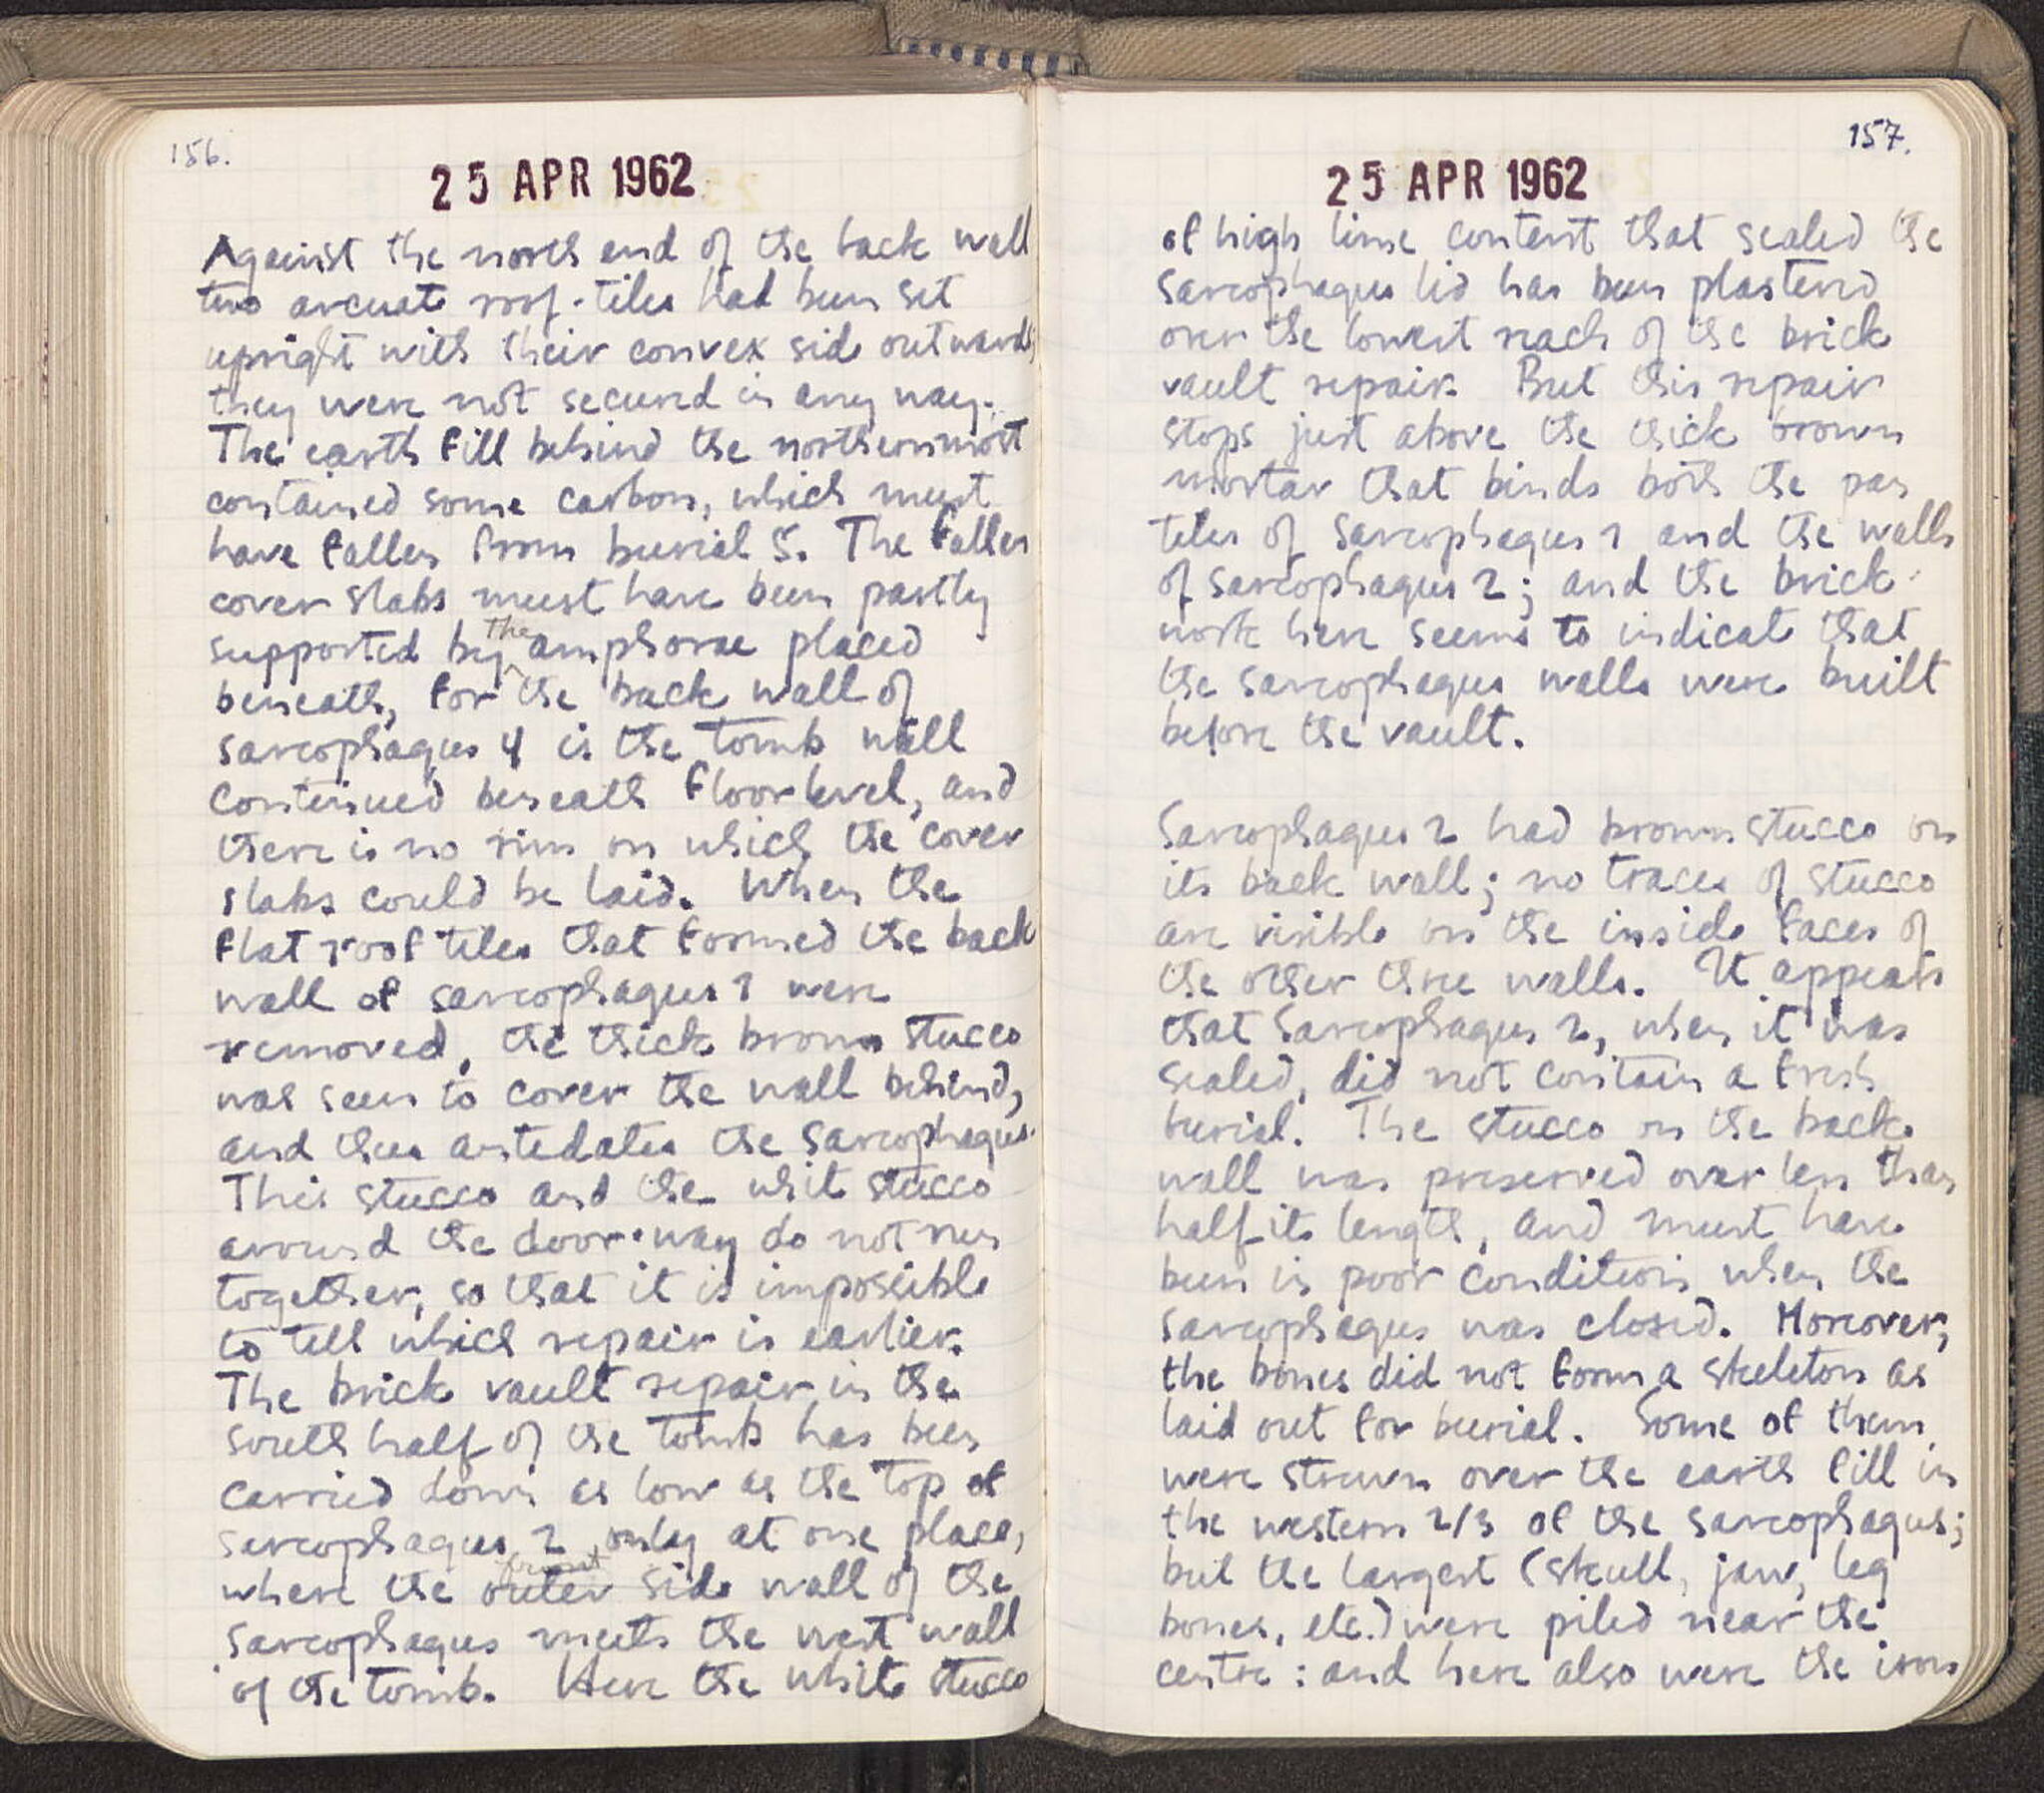 156.
25 APR 1962
Against the north end of the back wall
two arcuate roof-tiles had been set
upright with their convex side outwards;
they were not secured in any way.
The earth fill behind the northernmost
contained some carbon, which must
have fallen from burial 5. The fallen
cover slabs must have been partly
supported by the amphorae placed
beneath, for the back wall of
sarcophagus 4 is the tomb wall
continued beneath floor level, and
there is no rim on which the cover
slabs could be laid. When the
flat roof tiles that formed the back
wall of sarcophagus 1 were
removed, the thick brown stucco
was seen to cover the wall behind,
and thus antedates the sarcophagus.
This stucco and the white stucco
around the door-way do not run
together, so that it is impossible
to tell which repair is earlier.
The brick vault repair in the
south half of the tomb has been
carried down as low as the top of
sarcophagus 2 only at one place,
where the outer front side wall of the
sarcophagus meets the west wall
of the tomb. Here the white stucco
157.
25 APR 1962
of high lime content that sealed the
sarcophagus lid has been plastered
over the lowest reach of the brick
vault repair. But this repair
stops just above the thick brown
mortar that binds both the pan
tiles of Sarcophagus 1 and the walls
of sarcophagus 2; and the brick
work here seems to indicate that
the sarcophagus walls were built
before the vault.
Sarcophagus 2 had brown stucco on
its back wall; no traces of stucco
are visible on the inside faces of
the other three walls. It appears
that Sarcophagus 2, when it was
sealed, did not contain a fresh
burial. The stucco on the back
wall was preserved over less than
half its length, and must have
been in poor condition when the
sarcophagus was closed. Moreover,
the bones did not form a skeleton as
laid out for burial. Some of them
were strewn over the earth fill in
the western 2/3 of the sarcophagus;
but the largest (skull, jaw, leg
bones, etc.) were piled near the
centre: and here also were the iron